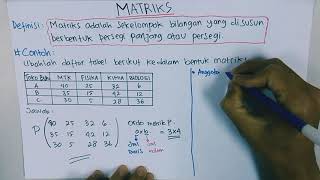 MATRIKS
Definisi: Matriks adalah sekelompok bilangan yang disusun
berbentuk persegi panjang atau persegi.
Contoh:
Ubahlah daftar tabel berikut kedalam bentuk matriks
Toko Buku MTK FISIKA KIMIA BIOLOGI
A 40 25 32 6
B 35 15 42 12
C 30 5 28 36
Jawab:
P 40 25 32 6
35 15 42 12
30 5 28 36
Ordo matrik P.
a x b = 3x4
Jml Jml
baris kolom
* Anggota